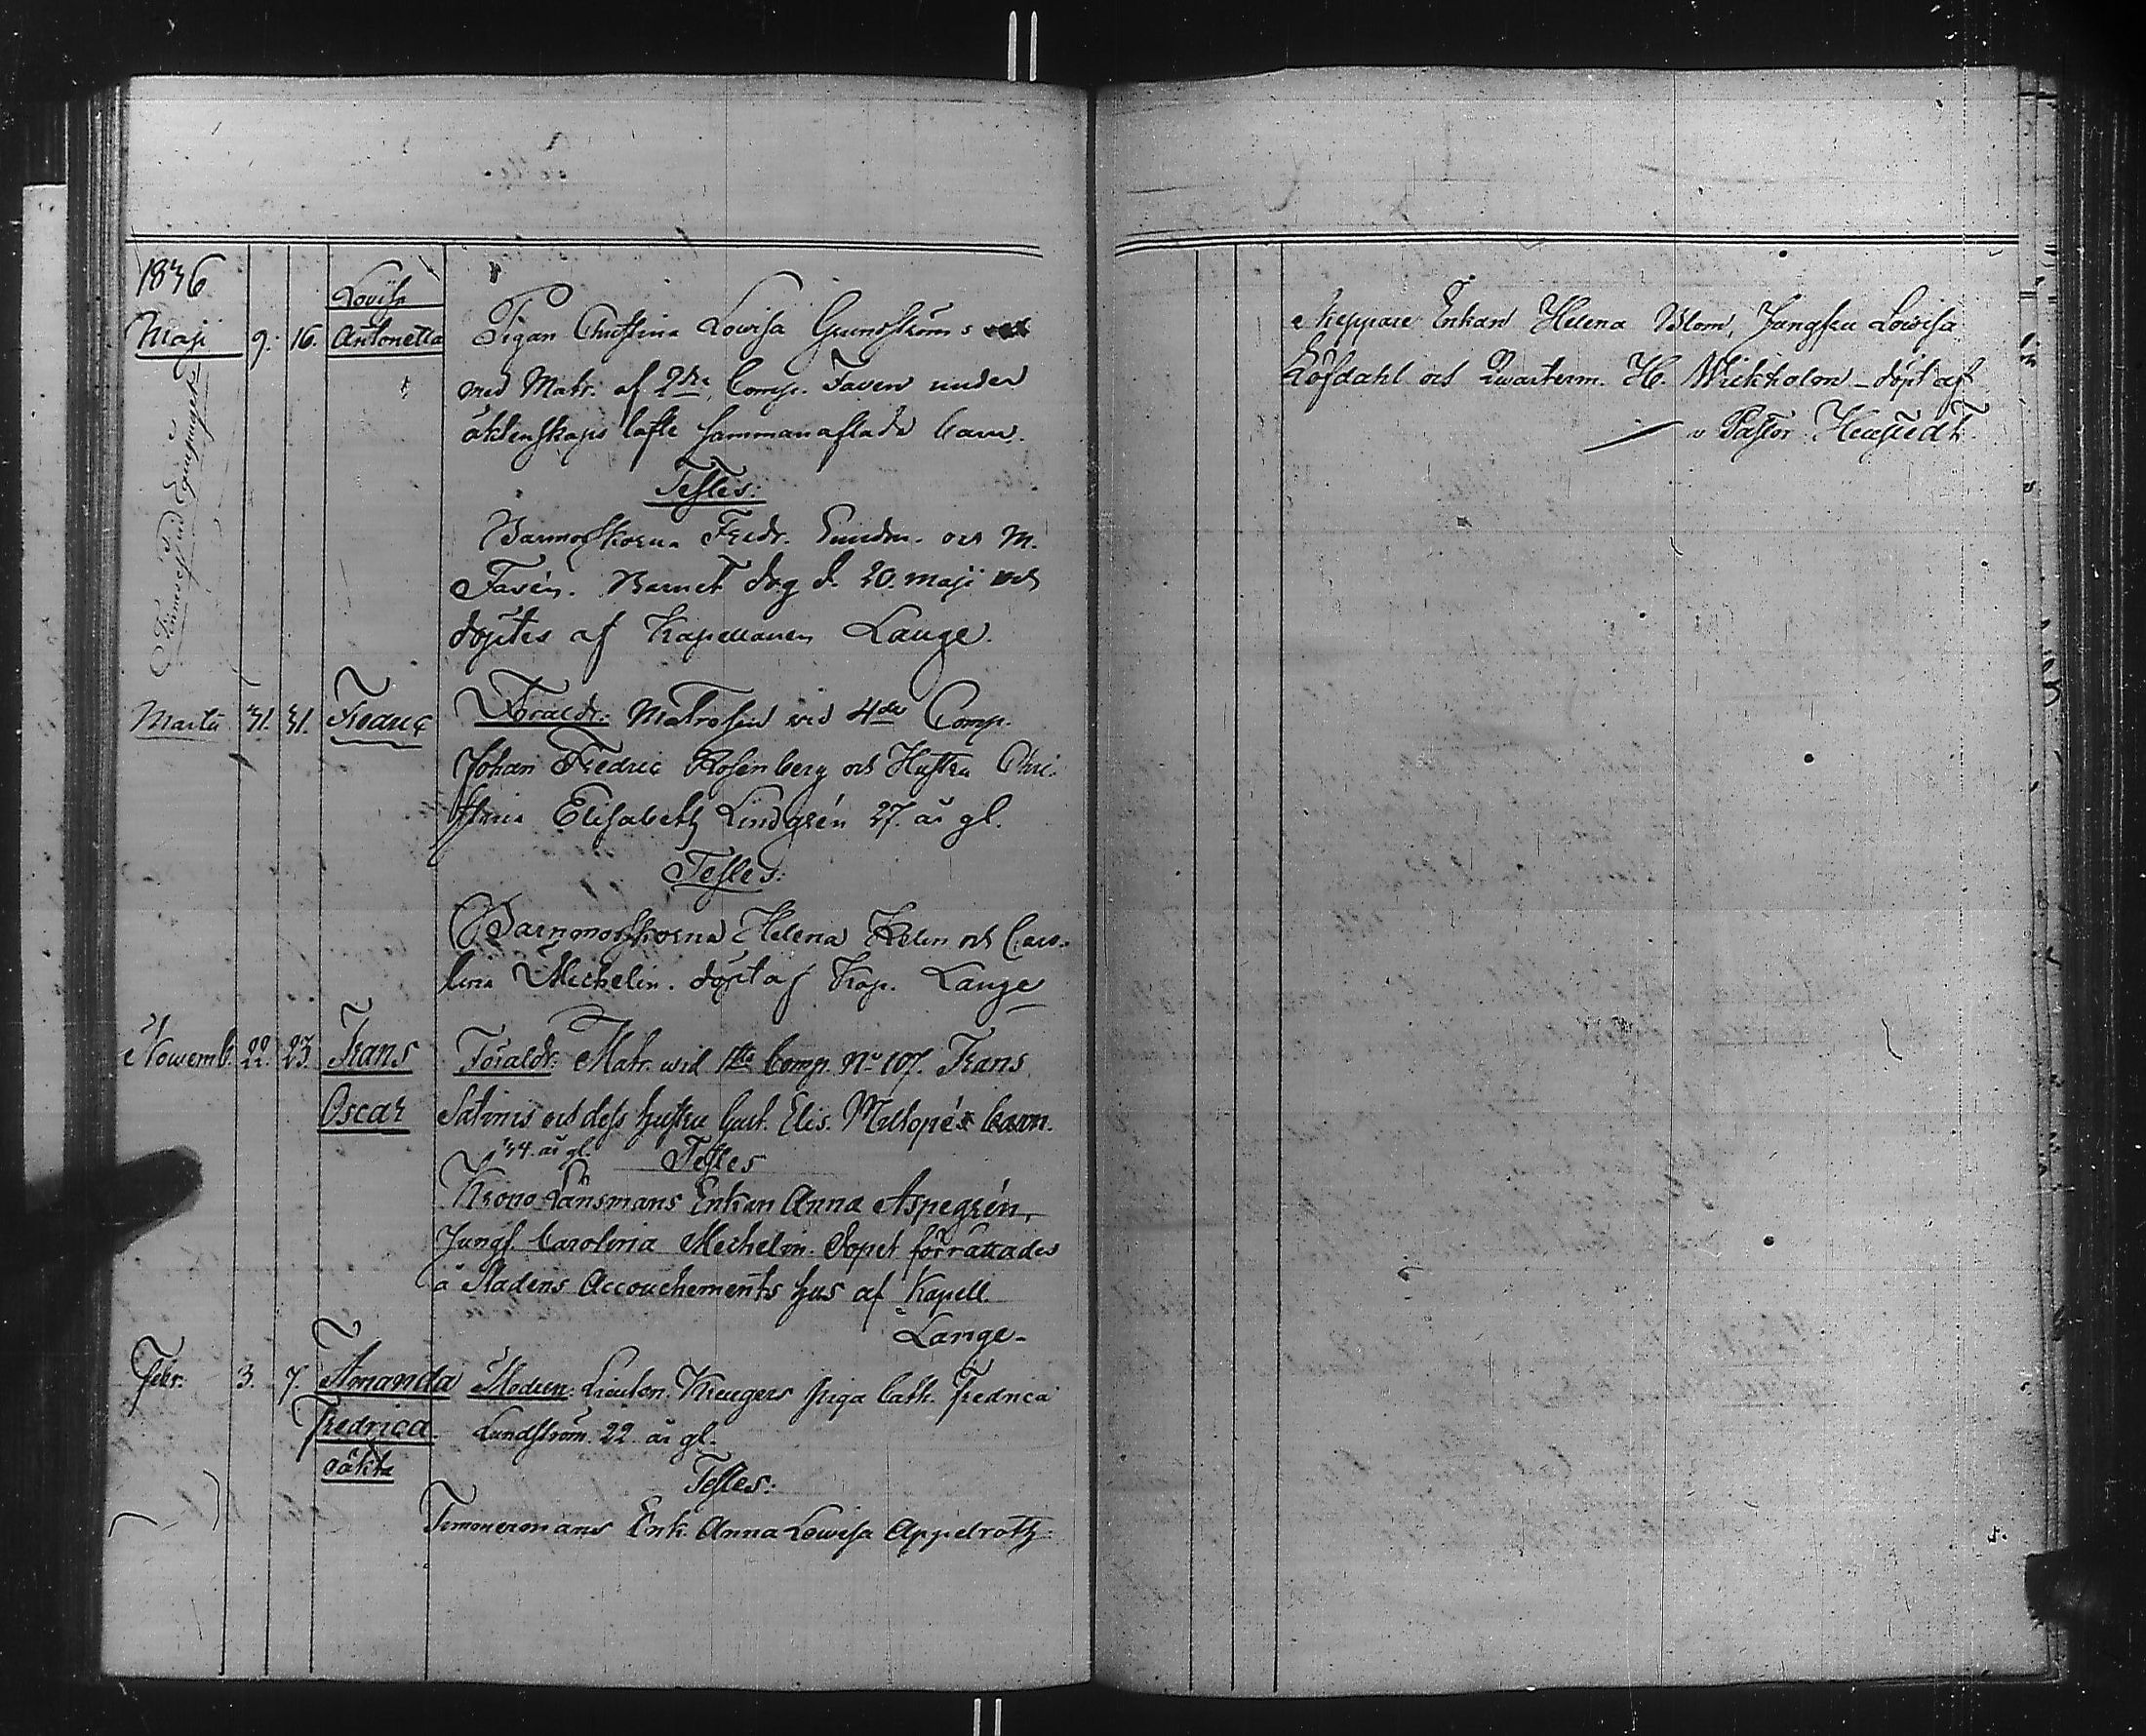 1836
Maji 9. 16. Lovisa
Antonetta
Pigan Christina Lowisa Grundströms
med Matr. af 2dra Comp. Faven under
äktenskaps löfte sammanaflade barn.
Testes:
Barnmorskorna Fredr. Sundm. och M.
Favén. Barnet dog d. 20. maji och
döptes af Kapellanen Lange.
Martii 31. 31. Fredric
Föraldr: Matrosen wid 4de Comp.
Johan Fredric Rosenberg och Hustru Chri-
stina Elisabeth Lindgrén 27. år gl.
Testes:
Barnmorskorna Helena Helen och Caro-
lina Mechelin. döpt af Kap. Lange
Nowemb. 22. 23. Frans
Oscar
Föraldr: Matr. wid 1sta Comp. No 107. Frans
och dess hustru Gust. Elis. barn.
34. år gl. Testes
Krono Länsmans Enkan Anna Aspegrén,
Jungf. Carolina Mechelin. Dopet förrättades
å Stadens Accouchements hus af Kapell.
Lange-
Febr. 3. 7. Amanda
Fredrica
oäkta
Modren: Lieuten. Kreugers piga Cath. Fredrica
Lundström. 22 år gl.
Testes:
Timmermans Enk. Anna Lowisa Appelroth
Skeppare Enkan Helena Blom, Jungfru Lowisa
Löfdahl och Quarterm. H. Wikholm - döpt af
v Pastor